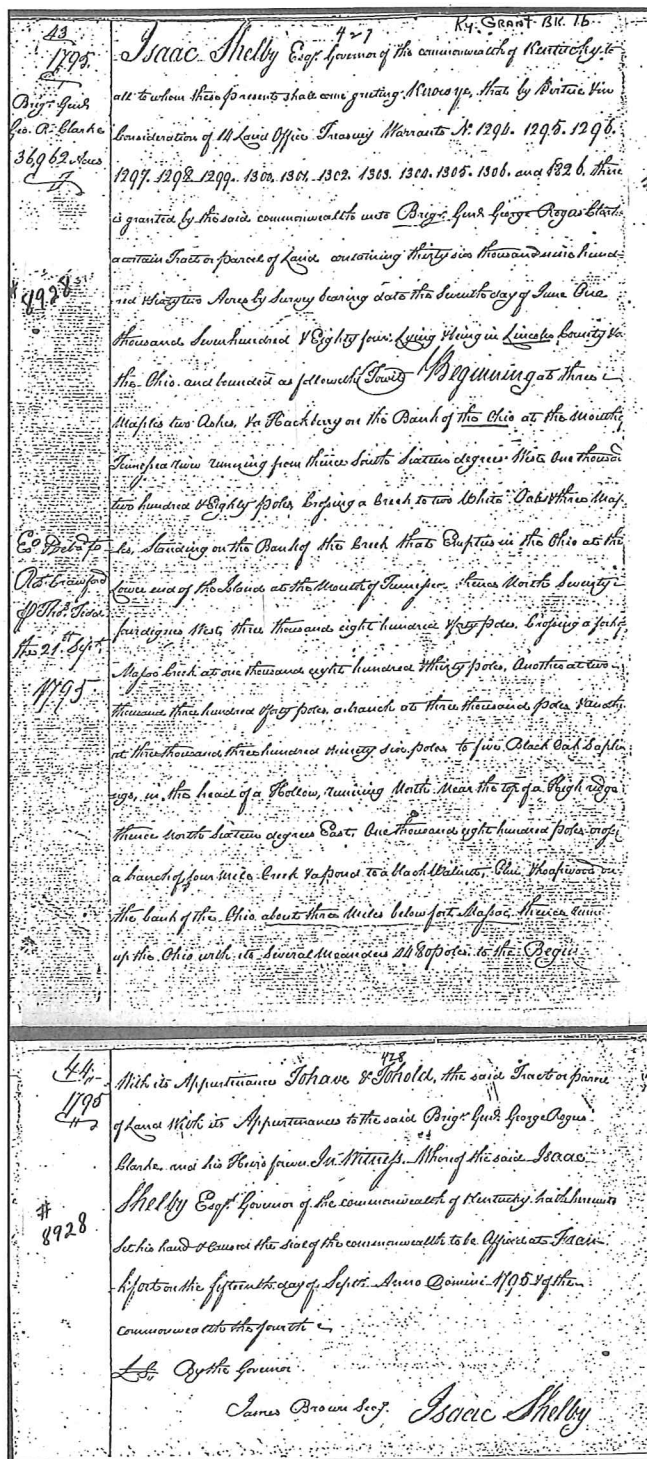 427
Ky. GRANT BK. 1b
43
1795
Brigr. Genl.
Geo. R. Clarke
36,962 Acres
# 8928
Isaac Shelby Esqr. Governor of the commonwealth of Kentucky to
all to whom these presents shall come greeting. Know ye, that by Virtue & in
Consideration of 14 Land Office Treasury Warrants No. 1294. 1295. 1296.
1297. 1298. 1299. 1300. 1301. 1302. 1303. 1304. 1305. 1306. and 1826. there
is granted by the said commonwealth unto Brigr. Genl. George Rogers Clark
a certain Tract or parcel of Land containing thirty six thousand nine hund-
red & sixty two Acres by Survey bearing date the Seventh day of June One
thousand Seven hundred & Eighty four Lying & being in Lincoln County &
the Ohio. and bounded as followeth Towit Beginning at three
Maples two Ashes, & a Hackberry on the Bank of the Ohio at the Mouth of
Tennessee river running from thence South Sixteen degrees West One thousand
two hundred & Eighty poles Crossing a Creek to two White Oaks & three Map-
les, Standing on the Bank of the Creek that Empties in the Ohio at the
Lower end of the Island at the Mouth of Tennessee. thence North Seventy
four degrees West, three thousand eight hundred & forty poles, Crossing a fork of
Massac Creek at one thousand eight hundred & thirty poles, Another at two
thousand three hundred & forty poles, a branch at three thousand poles & another
at three thousand three hundred & ninety six poles to five Black Oak Saplin
ngs, in the head of a Hollow, running North Near the top of a High ridge
thence North Sixteen degrees East, One thousand eight hundred poles crossg
a branch of four mile Creek & a pond to a black Walnut, Elm & hoopwood on
the bank of the Ohio about three Miles below fort Massac, thence
up the Ohio with its Several Meanders 4480 poles, to the Begin
Rob. Crawford
the 21st Sept
1795
44
1795
428
# 8928
With its Appurtinance To have & To hold, the said Tract or parce
of Land With its Appurtinances to the said Brigr. Genl. George Rogers
Clarke and his Heirs forever. In Witness Whereof the said Isaac
Shelby Esqr. Governor of the commonwealth of Kentucky hath hereunto
Set his hand & caused the seal of the commonwealth to be Affixed at Fran
kfort on the fifteenth day of Septr. Anno Domini 1795 & of the
commonwealth the fourth
L.S. By the Governor
James Brown Secy. Isaac Shelby